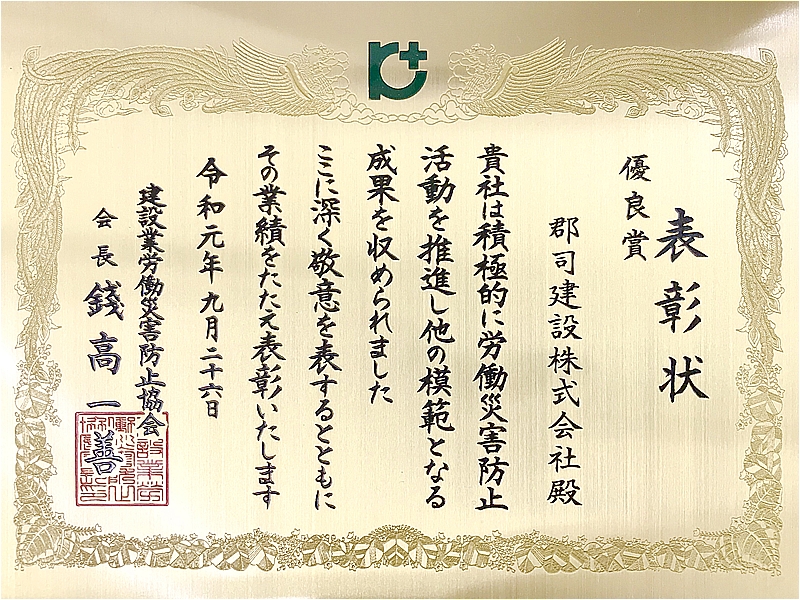 表彰状
優良賞
郡司建設株式会社殿
貴社は積極的に労働災害防止
活動を推進し他の模範となる
成果を収められました
ここに深く敬意を表するとともに
その業績をたたえ表彰いたします
令和元年九月二十六日
建設業労働災害防止協会
会長 錢高一善